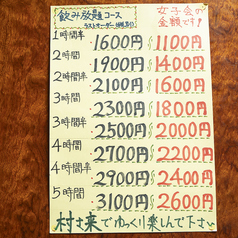 飲み放題コース
ラストオーダー
女子会の
金額です!
1時間 1600円 1100円
1時間半 1900円 1400円
2時間 2100円 1600円
2時間半 2300円 1800円
3時間 2500円 2000円
3時間半 2700円 2200円
4時間 2900円 2400円
4時間半
5時間 3100円 2600円
村さ来でゆっくり楽しんで下さい